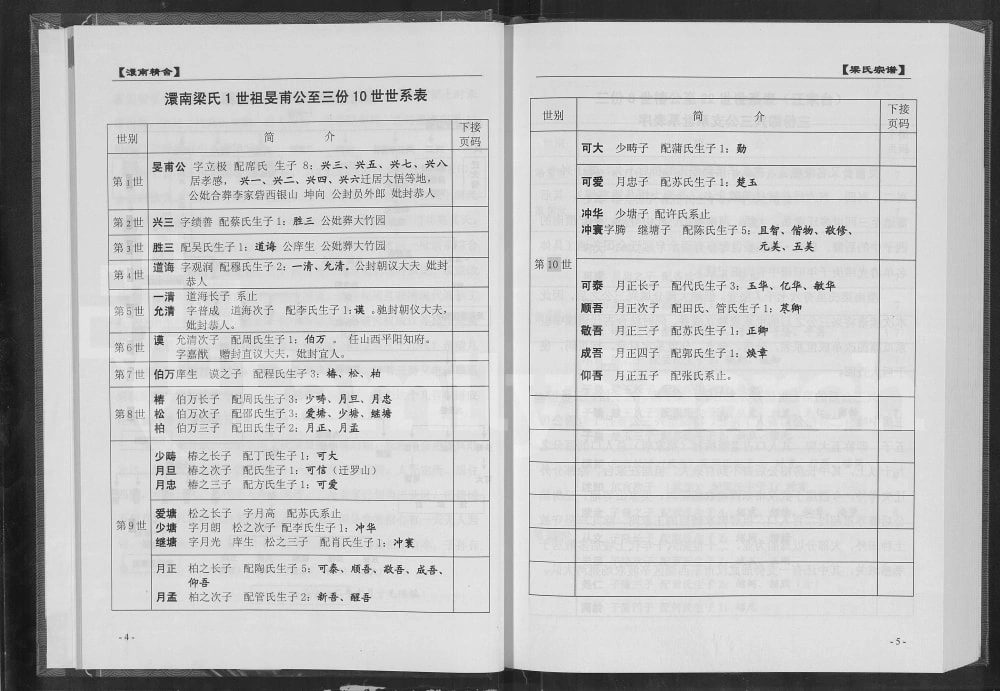 【澴南精舍】
澴南梁氏1世祖旻甫公至三份10世世系表
世别 简 介 下接页码
第1世 旻甫公 字立极 配席氏 生子8：兴三、兴五、兴七、兴八
居孝感， 兴一、兴二、兴四、兴六迁居大悟等地，
公妣合葬李家砦西银山 坤向 公封员外郎 妣封恭人
第2世 兴三 字绩善 配蔡氏生子1：胜三 公妣葬大竹园
第3世 胜三 配吴氏生子1：道海 公庠生 公妣葬大竹园
第4世 道海 字观润 配穆氏生子2：一清、允清。公封朝议大夫 妣封
恭人
第5世 一清 道海长子 系止
允清 字普成 道海次子 配李氏生子1：谟 。驰封朝仪大夫，
妣封恭人。
第6世 谟 允清次子 配周氏生子1：伯万 。 任山西平阳知府。
字嘉猷 赠封直议大夫，妣封宜人。
第7世 伯万庠生 谟之子 配程氏生子3：椿、松、柏
第8世 椿 伯万长子 配周氏生子3：少畴、月旦、月忠
松 伯万次子 配邵氏生子3：爱塘、少塘、继塘
柏 伯万三子 配田氏生子2：月正、月孟
第9世 少畴 椿之长子 配丁氏生子1：可大
月旦 椿之次子 配氏生子1：可信（迁罗山）
月忠 椿之三子 配方氏生子1：可爱
爱塘 松之长子 字月高 配苏氏系止
少塘 字月朗 松之次子 配李氏生子1：冲华
继塘 字月光 庠生 松之三子 配肖氏生子1：冲寰
月正 柏之长子 配陶氏生子5：可泰、顺吾、敬吾、成吾、
仰吾
月孟 柏之次子 配管氏生子2：新吾、醒吾
- 4 -
【梁氏宗谱】
世别 简 介 下接页码
第10世 可大 少畴子 配蒲氏生子1：勋
可爱 月忠子 配苏氏生子1：楚玉
冲华 少塘子 配许氏系止
冲寰字腾 继塘子 配陈氏生子5：且智、偕物、敬修、
元美、五美
可泰 月正长子 配代氏生子3：玉华、亿华、敏华
顺吾 月正次子 配田氏、管氏生子1：荩卿
敬吾 月正三子 配苏氏生子1：正卿
成吾 月正四子 配郭氏生子1：焕章
仰吾 月正五子 配张氏系止。
- 5 -